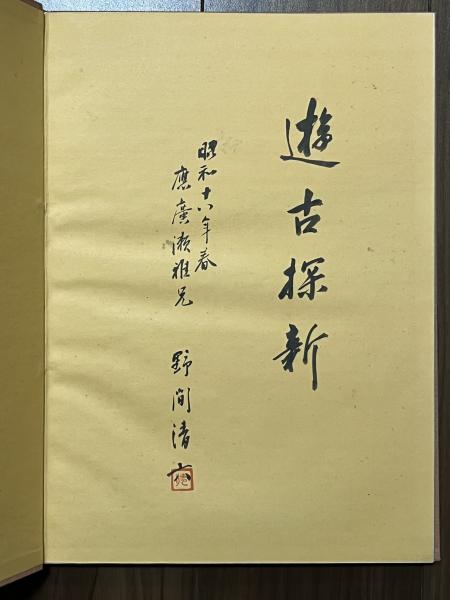 遊古探新
昭和十八年春
應廣瀬雅兄
野間清六